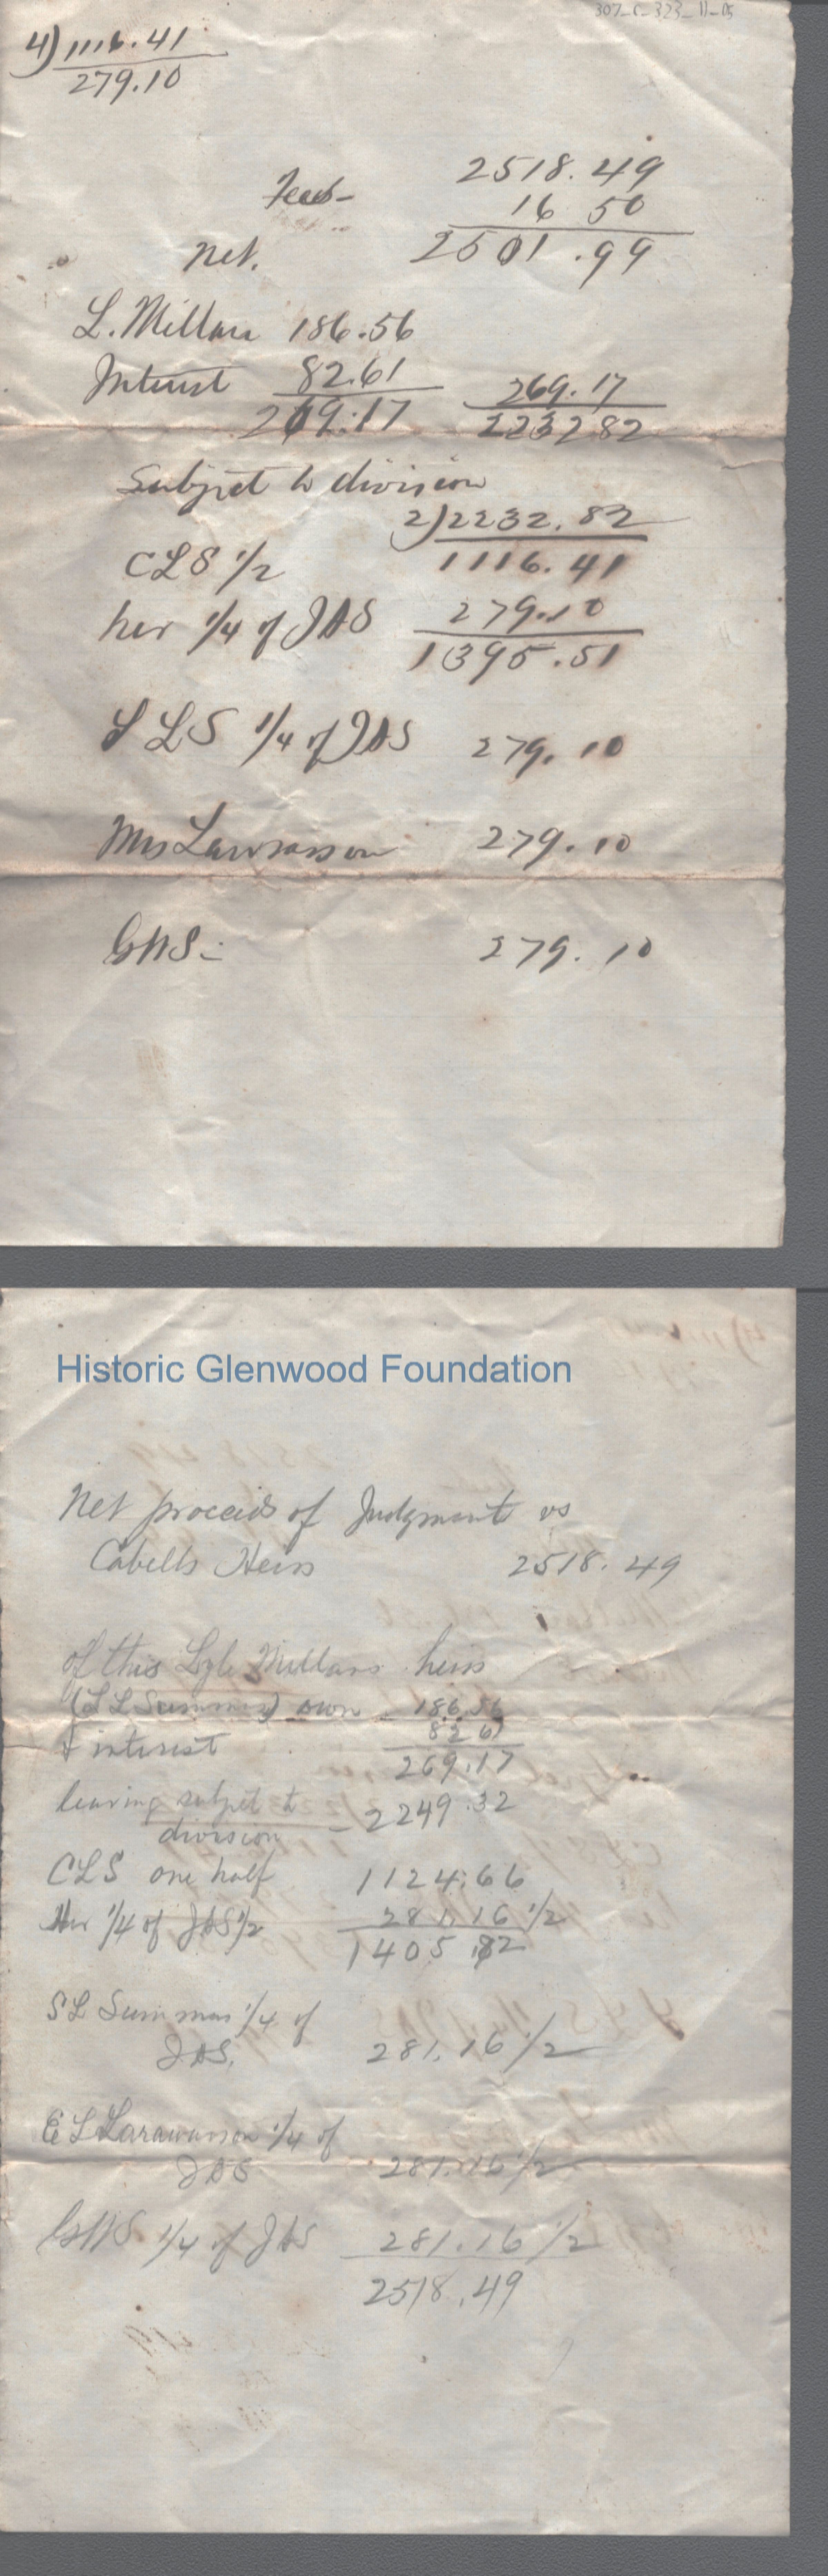 307-C-323-11-05
4)1116.41
279.10
2518.49
Fees- 16 50
Net. 2501.99
L. Millars 186.56
Interest 82.61 269.17
269.17 2232 82
Subject to division
2)2232.82
CLS 1/2 1116.41
her 1/4 of JAS 279.10
1395.51
S LS 1/4 of JAS 279.10
Mrs Lawrasson 279.10
GWS- 279.10
Historic Glenwood Foundation
Net proceeds of Judgment vs
Cabells Heirs 2518.49
of this Lyle Millars heirs
(S L Summers) own - 186.56
& interest 82 61
269.17
leaving subjet to
division - 2249.32
CLS one half 1124.66
Her 1/4 of JAS 1/2 281.16 1/2
1405 82
SL Summers 1/4 of
JAS. 281.16 1/2
E L Larawasson 1/4 of
JAS 281.16 1/2
GWS 1/4 of JAS 281.16 1/2
2518.49